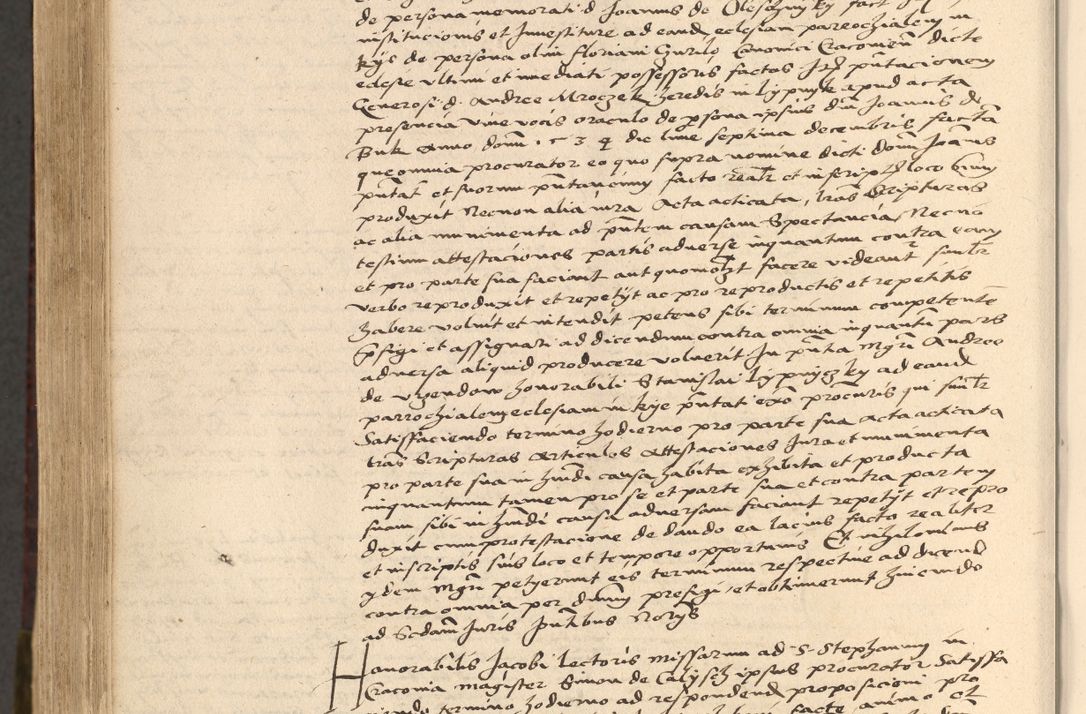 de persona memorati d Joannis de Olesznyky fact
institucionis et Investiture ad eand eclesiam parochialem in
kys de persona olim floriani Gurulo Canonici Cracovien dicte
eclesie ultimi et imediati possessoris factas pntacionem
Generosi d. Andree Mroczek heredis in Lypnyk apud acta
presencia vive vocis oraculo de psona ipsius dni Joannis de
Buk Anno domi 34 die lune septima decembris facta
que omnia procurator eo quo supra nomine dicti domi Joanis
produxit Necnon alia iura Acta acticata, lras Scripturas
ac alia munimenta ad pntem causam Spectancia Necno
testium attestaciones partis adverse inquantum contra eam
et pro parte sua faciant aut quomolzt facere videant simlr
verbo reproduxit et repetyt ac pro reproductis et repetitis
habere voluit et intendit petens sibi terminum competente
pfigi et assignari ad dicendum contra omnia inquantu pars
adversa aliquid producere voluerit In pnta Mgri Andree
de honorabili Stanislai Lypnyczky ad eand
parrochialem eclesiam in kye pntati procuris qui simlr
Satisfaciendo termino hodierno pro parte sua acta acticata
lras Scripturas Articulos Attestaciones Jura et munimenta
pro parte sua in hmdi causa habita exhibita et producta
inquantum tamen pro se et parte sua et contra partem
suam sibi in hmdi causa adversam faciant repetyt et repro
duxit cum protestacione de dando ea lacius facto realiter
et in scriptis suis loco et tempore opportunis Et nihilominus
ydem Mgri petyerunt eis terminum respective ad dicend
contra omnia per dnum prefigi et obtinuerunt hincinde
ad Scdam Juris pntibus Notys
Honorabilis Jacobi lectoris Missarum ad S Stephanum in
Cracovia Magister Simon de Calysch ipsius procurator Satisfa
ciendo termino hodierno ad respondend proposicioni pro
facte animo et